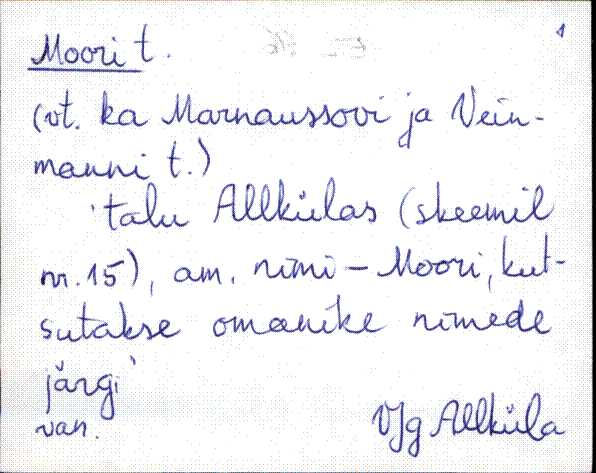 1
Moori t.
(vt. ka Marnaussovi ja Vein-
manni t.)
'talu Allkülas (skeemil
nr. 15), am. nimi – Moori, kut-
sutakse omanike nimede
järgi'
van.
VJg Allküla